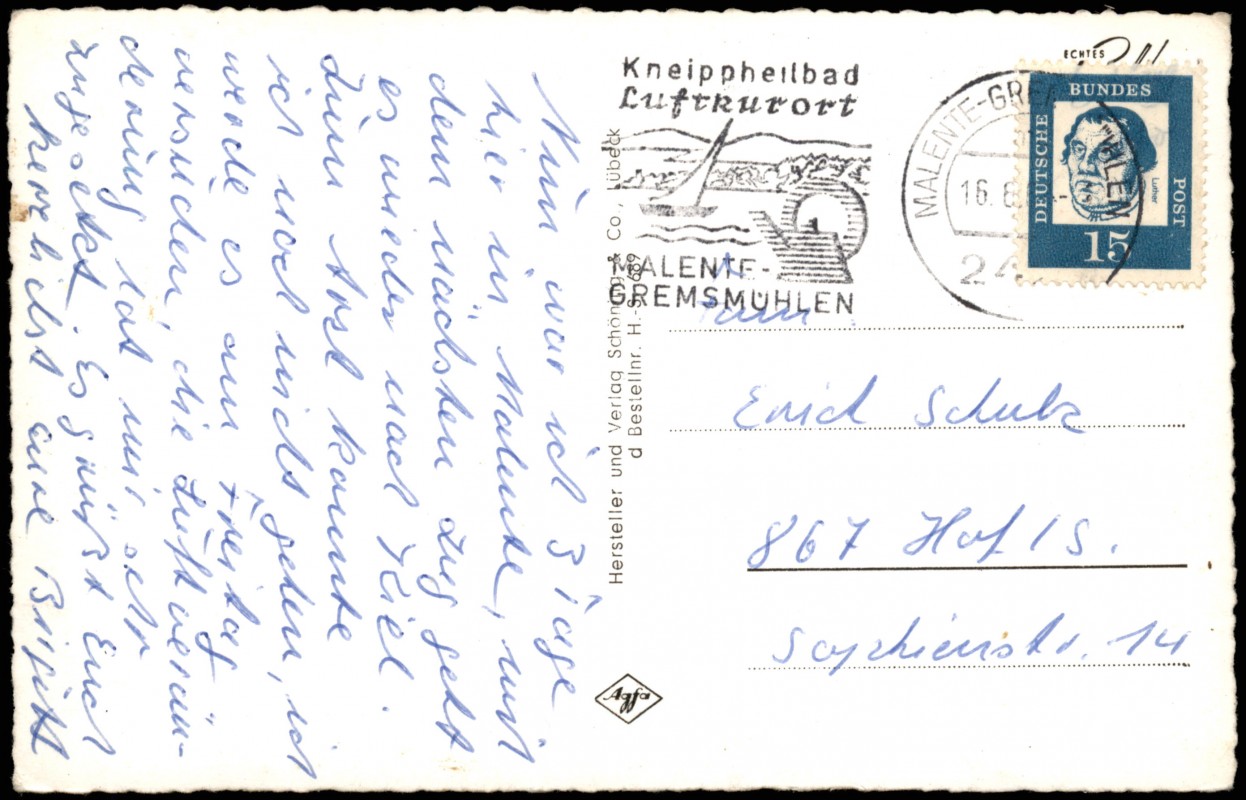 Nun war ich 3 Tage
hier in Malente, mit
dem nächsten Zug geht
es wieder nach Kiel.
Zum Arzt konnte
ich noch nicht gehen, ich
werde es am Freitag
versuchen, die Luftverän-
derung tat mir sehr
zuje setzt. Es grüßt Euch
herzlichst eure Brigitt
Kneippheilbad
Luftkurort
MALENTE-
GREMSMÜHLEN
ECHTES
MALENTE-GREMSMÜHLEN
16.
24
DEUTSCHE
BUNDES
POST
Luther
15
Hersteller und Verlag Schöning & Co., Lübeck
Bestellnr.
689
Fam.
Erich Schulz
867 Hof/S.
Sophienstr. 14
Agfa